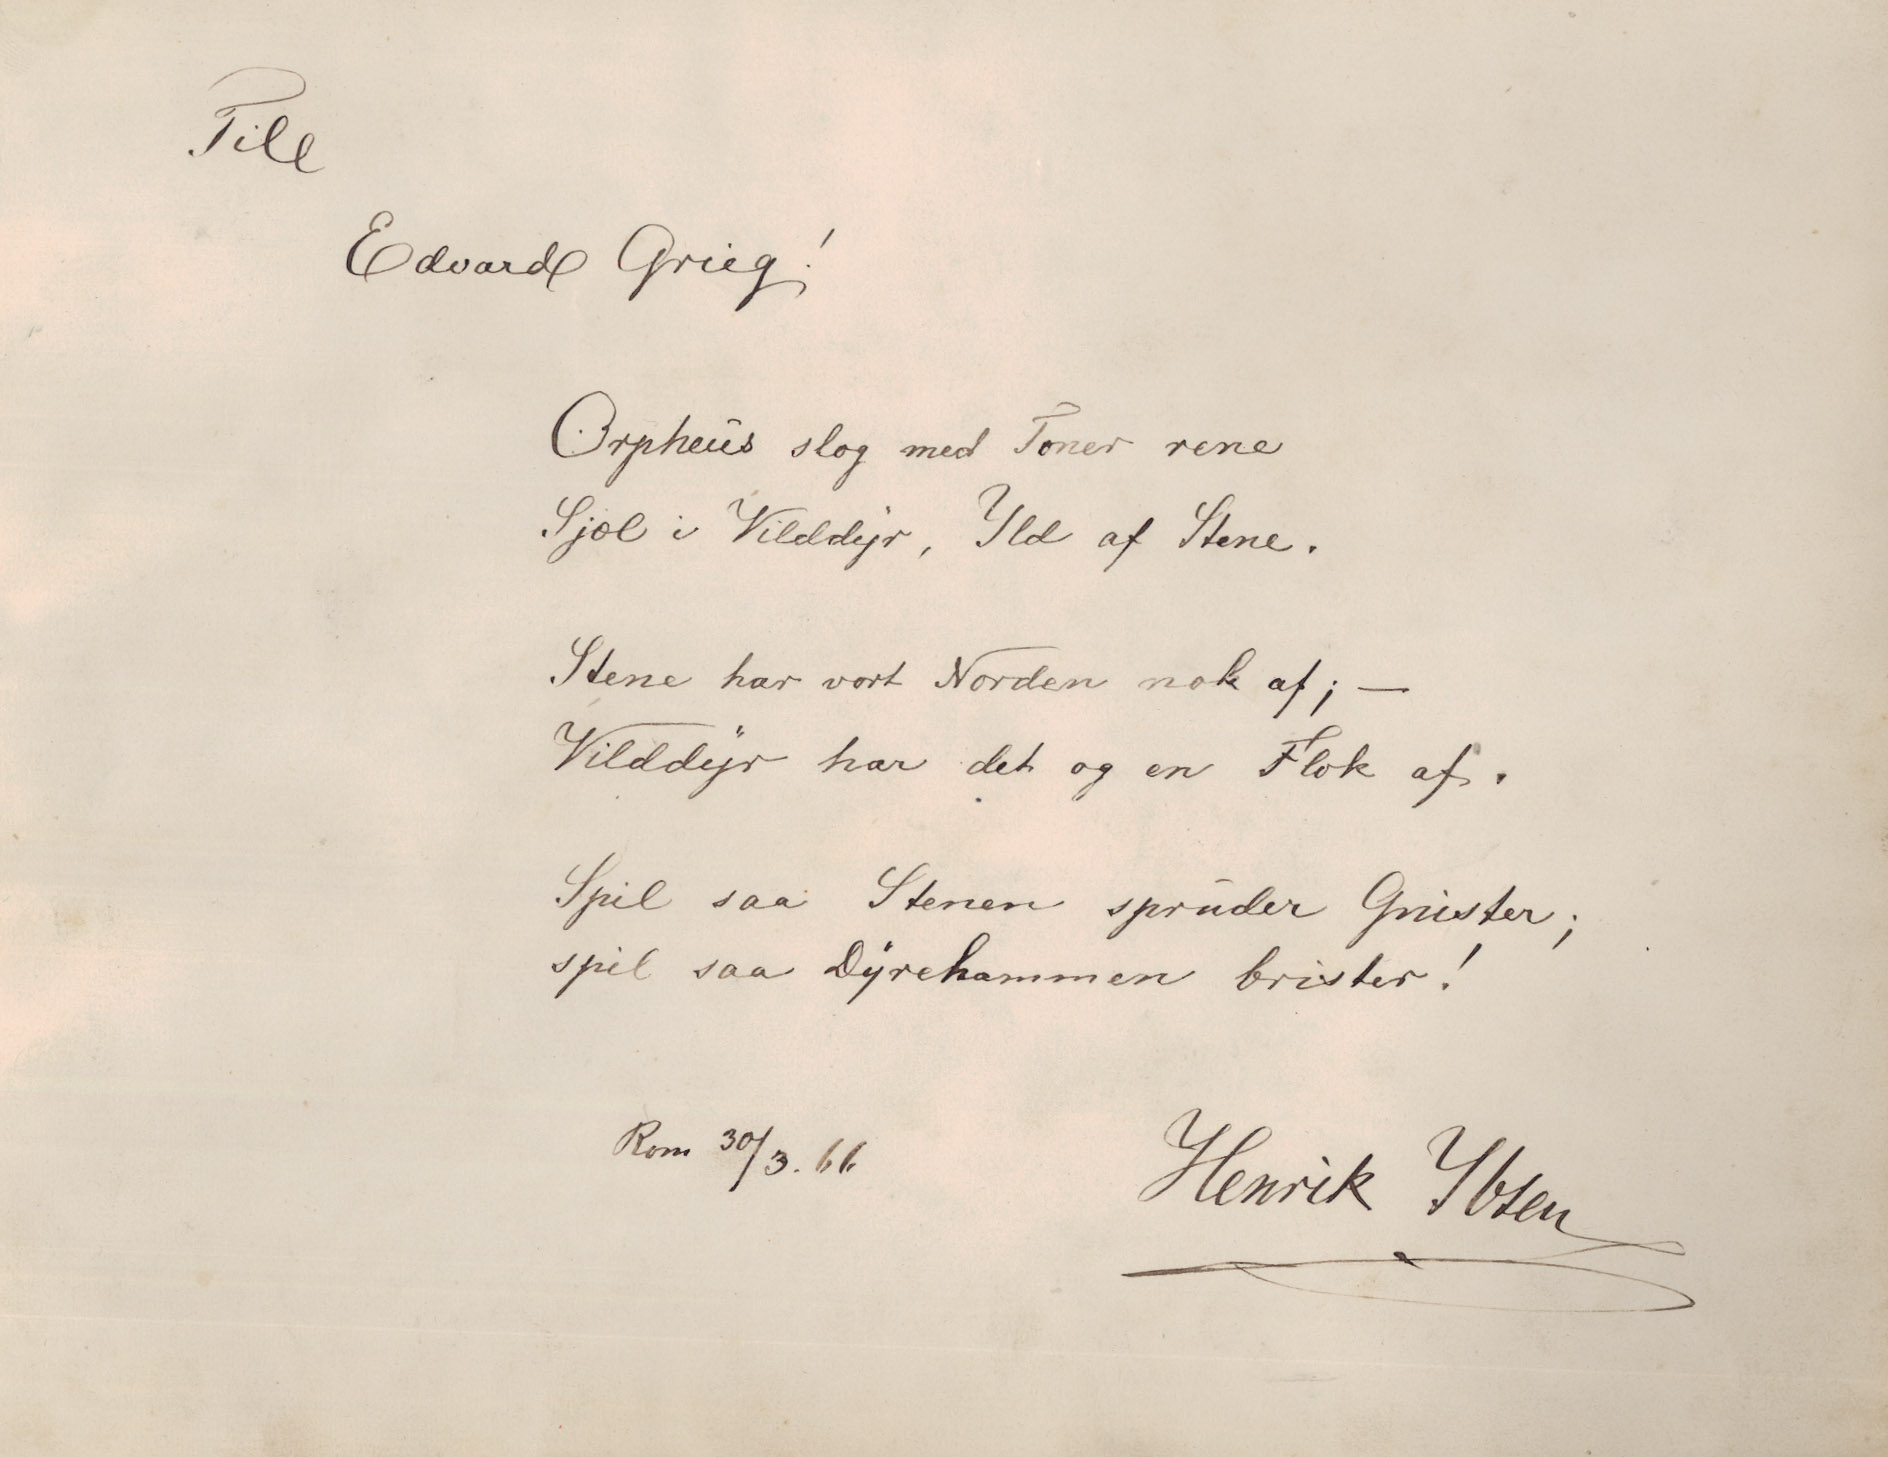 Till
Edvard Grieg!
Orpheus slog med Toner rene
Sjæl i Vilddÿr, Ild af Stene.
Stene har vort Norden nok af; —
Vilddÿr har det og en Flok af.
Spil saa Stenen spruder Gnister;
spil saa Dÿrehammen brister!
Rom 30/3. 66
Henrik Ibsen